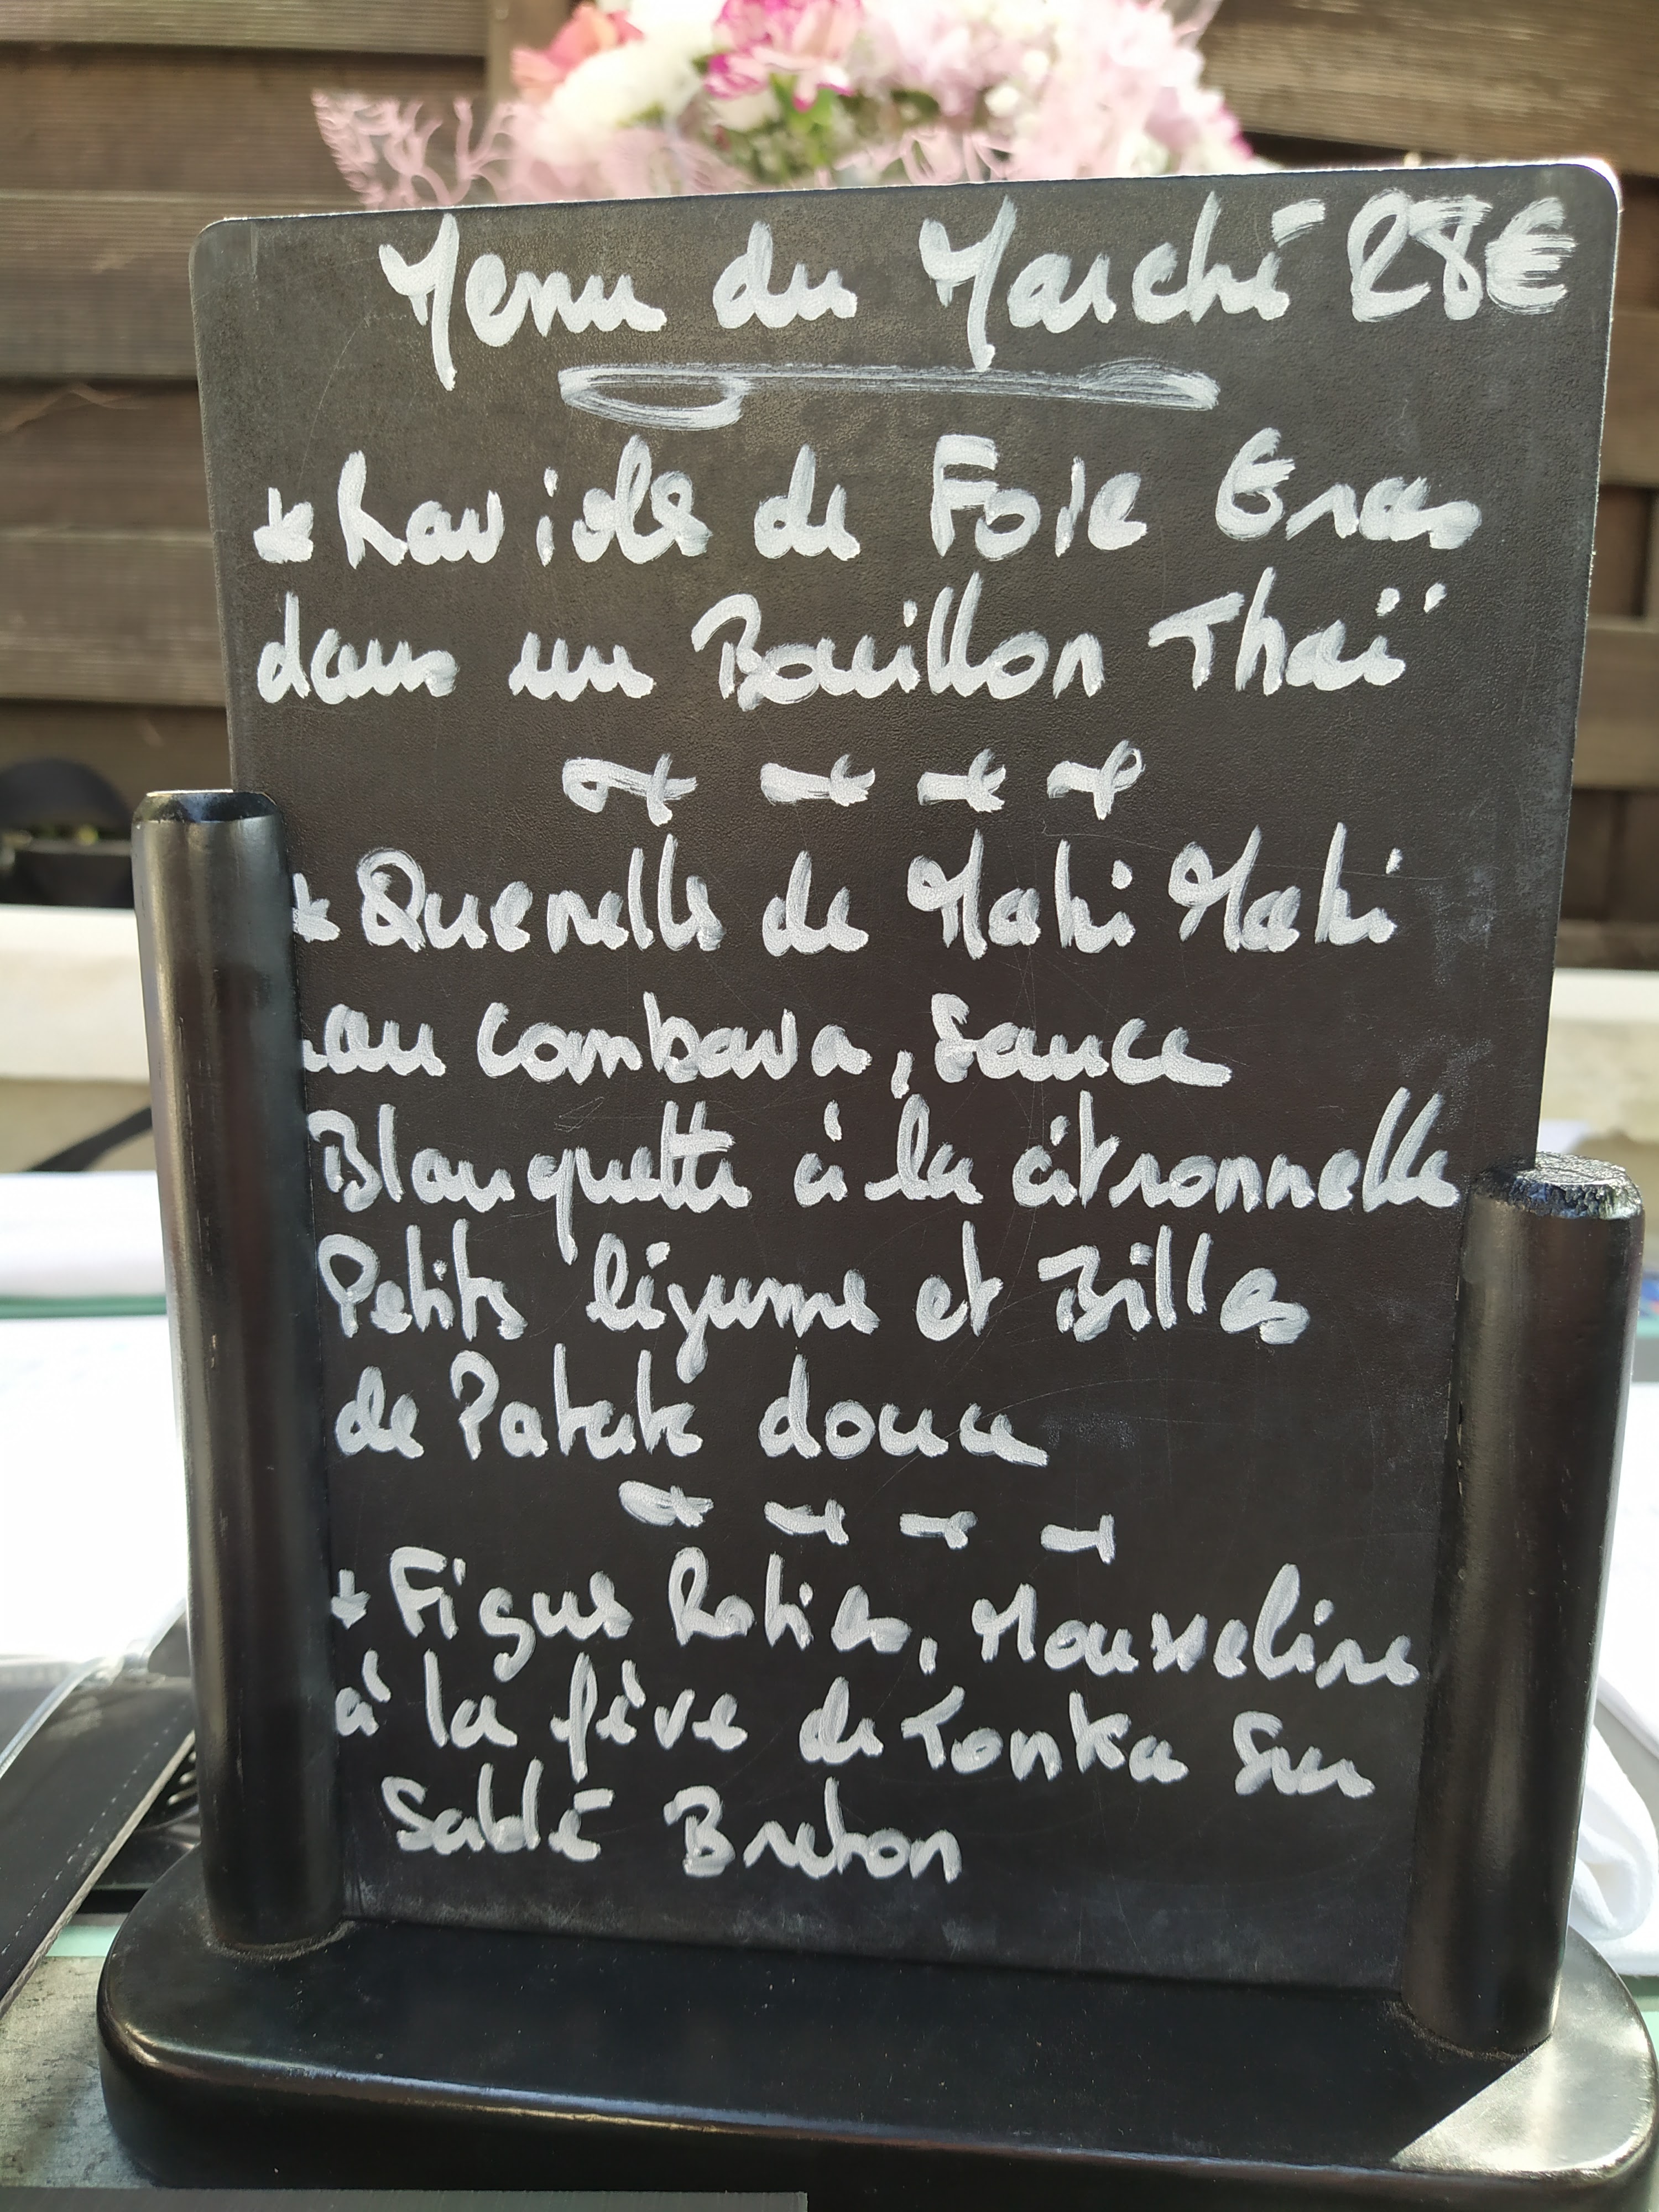 Menu du Marché 28€
* Raviole de Foie Gras
dans un Bouillon Thaï
* Quenelle de Mahi Mahi
au combava, Sauce
Blanquette à la citronnelle
Petits légumes et Billes
de Patate douce
* Figues Roties, Mousseline
à la fève de Tonka Sur
Sablé Breton